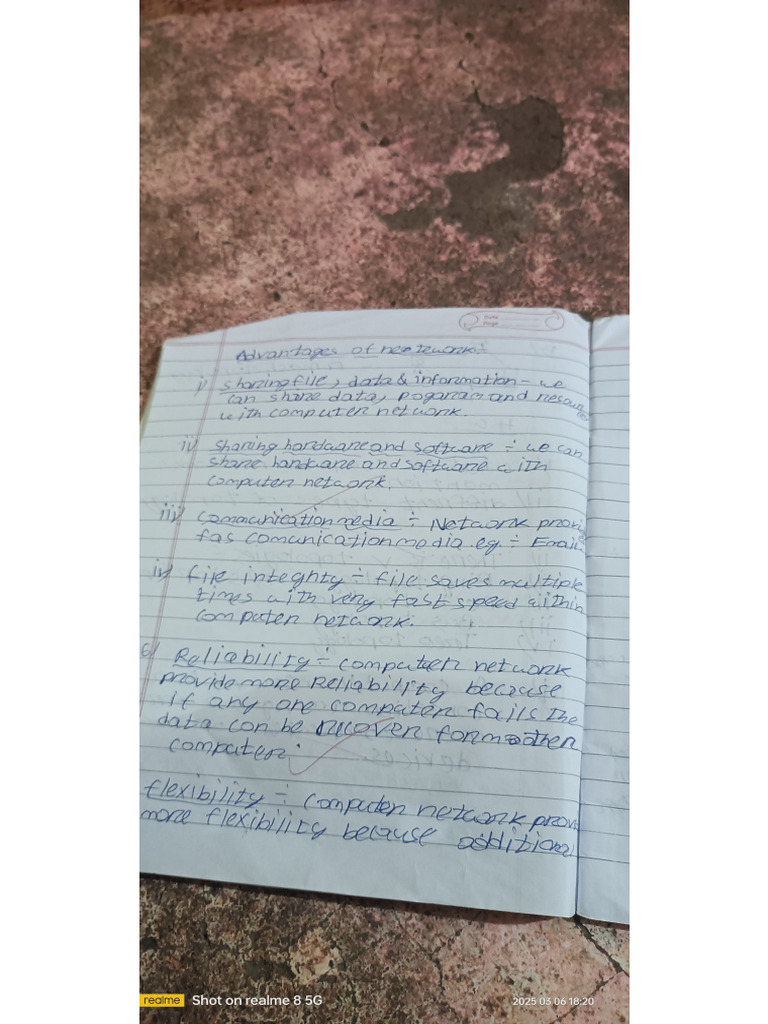 Date
Page
Advantages of network ÷
i) sharing file, data & information - we
can share data, pogaram and resour
with computer network.
ii) Sharing hardware and software ÷ we can
share hardware and software with
computer network.
iii) Communication media ÷ Network provi
fas comunication media eg ÷ Email
iv) file integrity ÷ file saves multiple
times with very fast speed within
computer network.
6) Reliability ÷ computer network
provide more Reliability because
if any one computer fails the
data can be recover form other
computer.
flexibility ÷ computer network prov
more flexibility because additional
devices.
realme Shot on realme 8 5G
2025 03 06 18:20